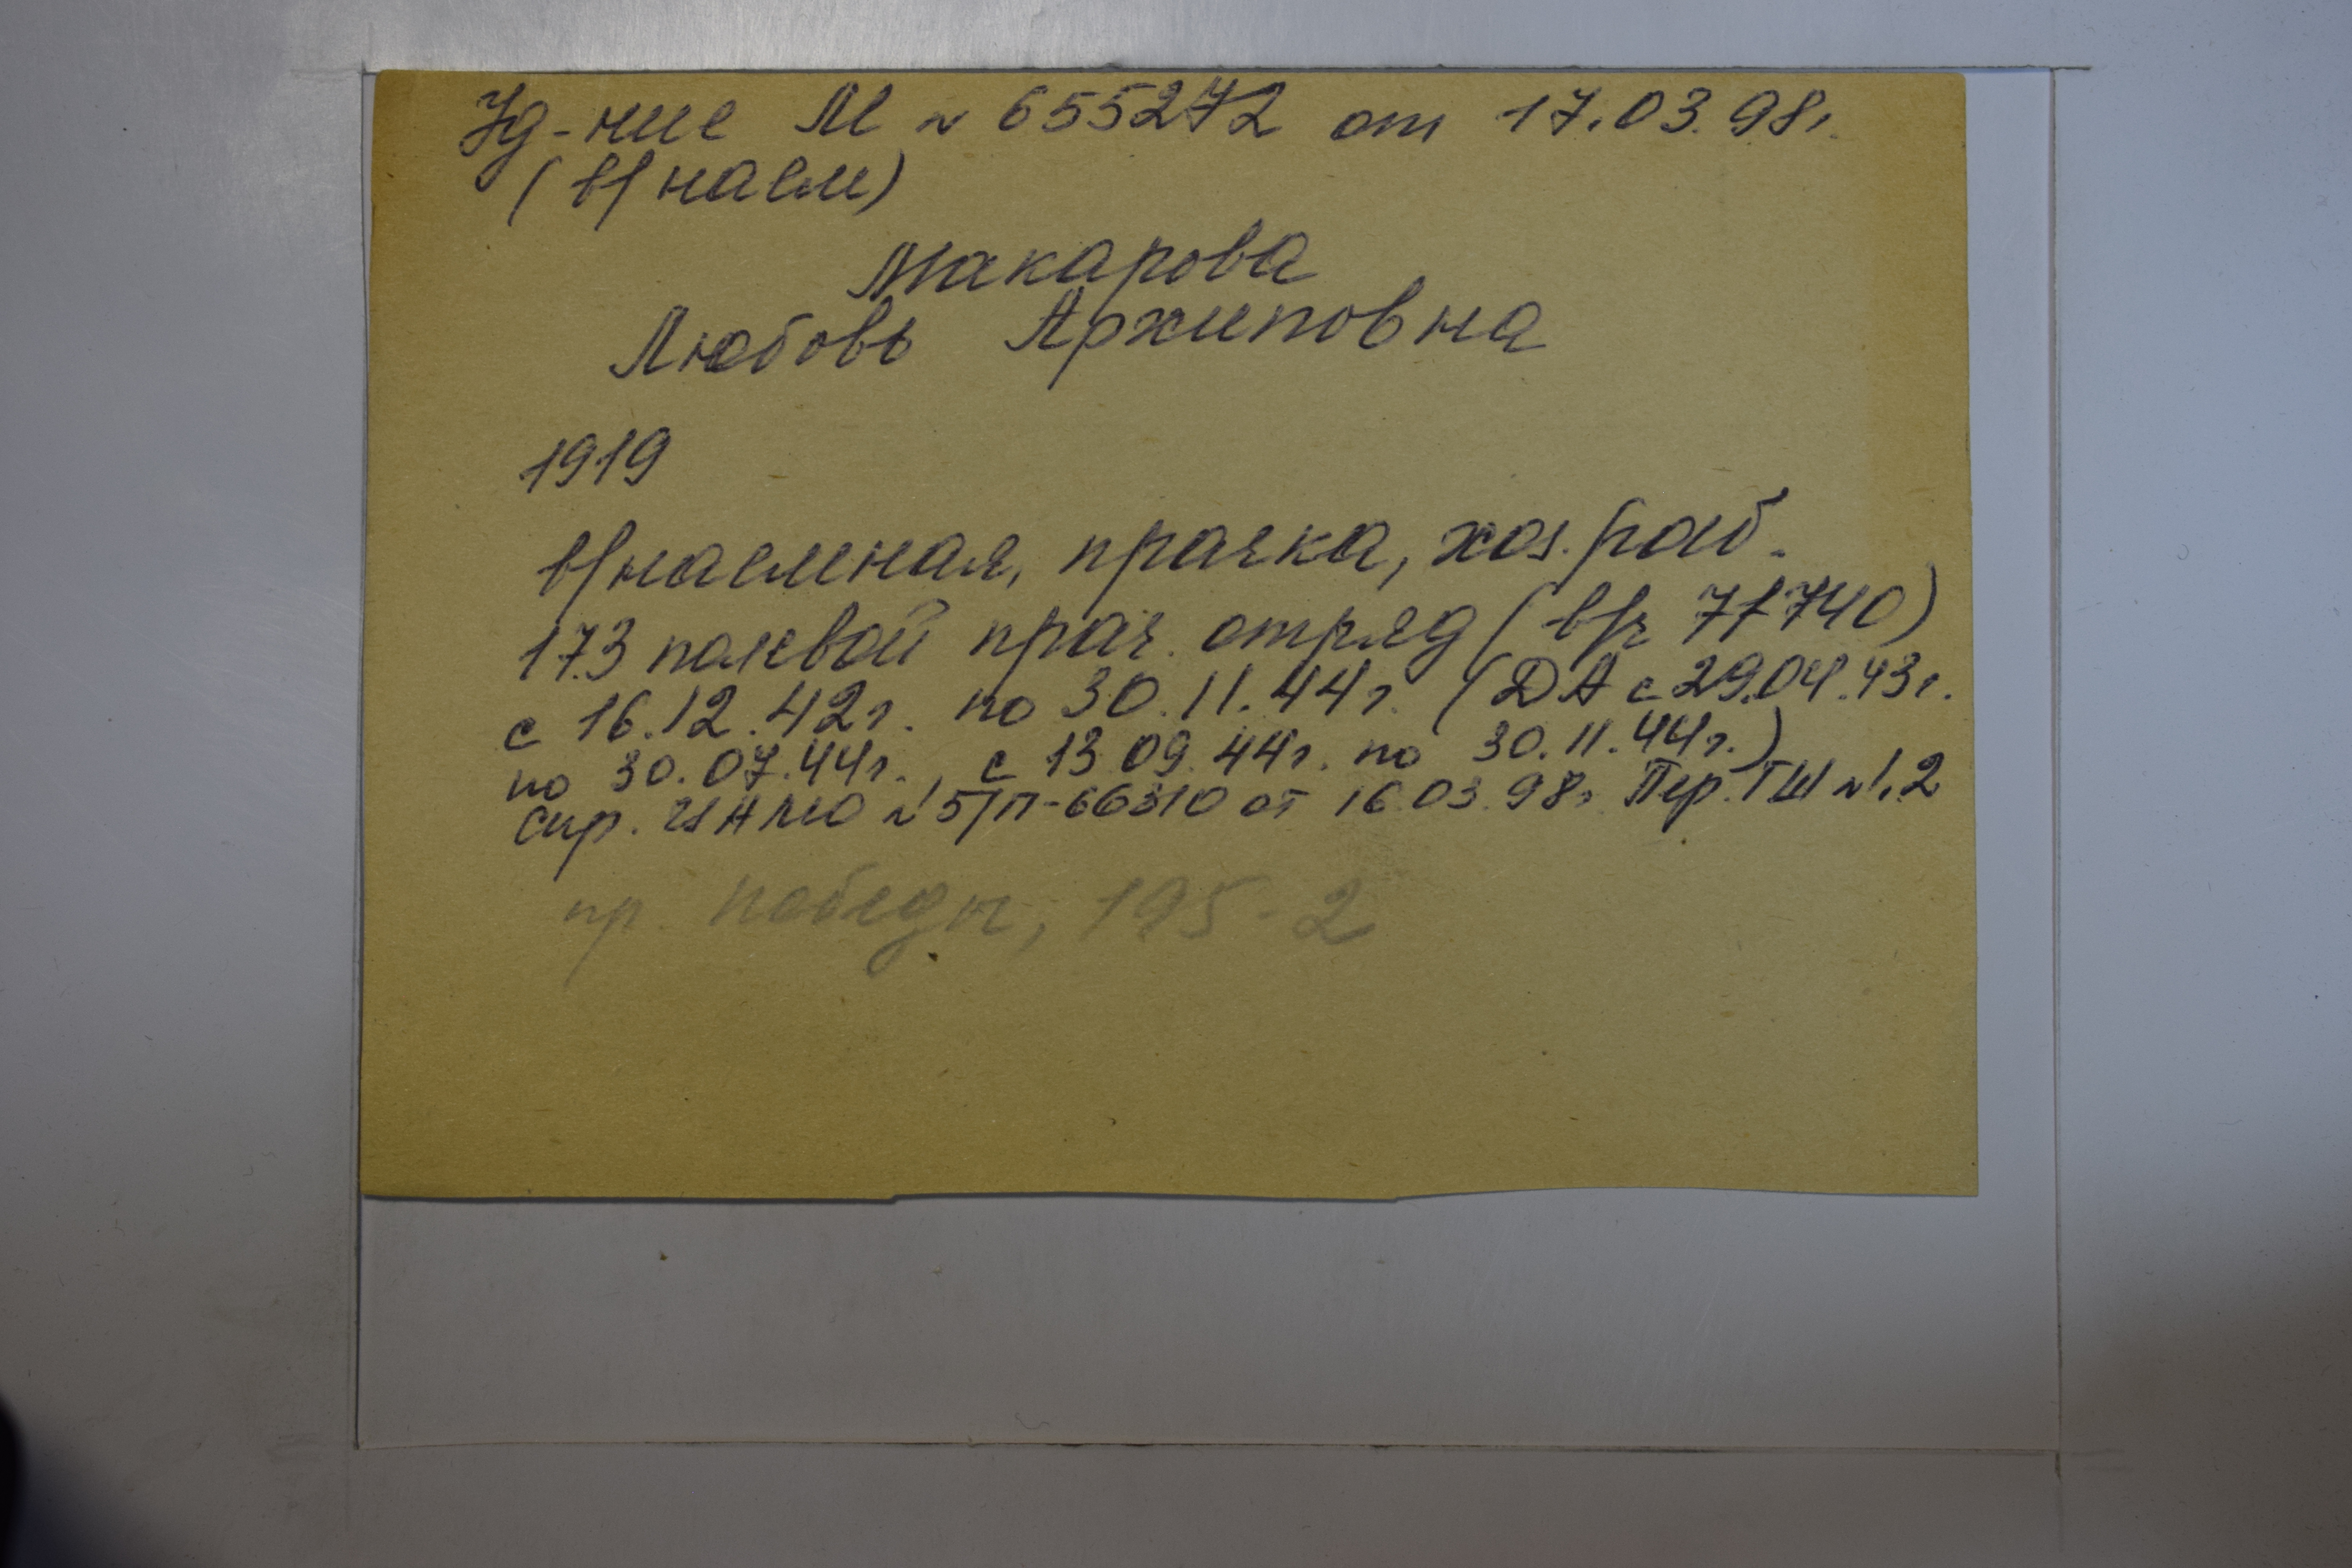 Уд-ние М № 655272 от 17.03.98г.
(в/наем)
Макарова
Любовь Архиповна
1919
в/наемная, прачка, хоз. раб.
173 полевой прач. отряд (в/ч 71740)
с 16.12.42г. по 30.11.44г. (ДА с 29.04.43г.
по 30.07.44г., с 13.09.44г. по 30.11.44г.)
Спр. ЦАМО №5/П-66310 от 16.03.98г. Пер. ГШ №1,2
пр. Победы, 195-2